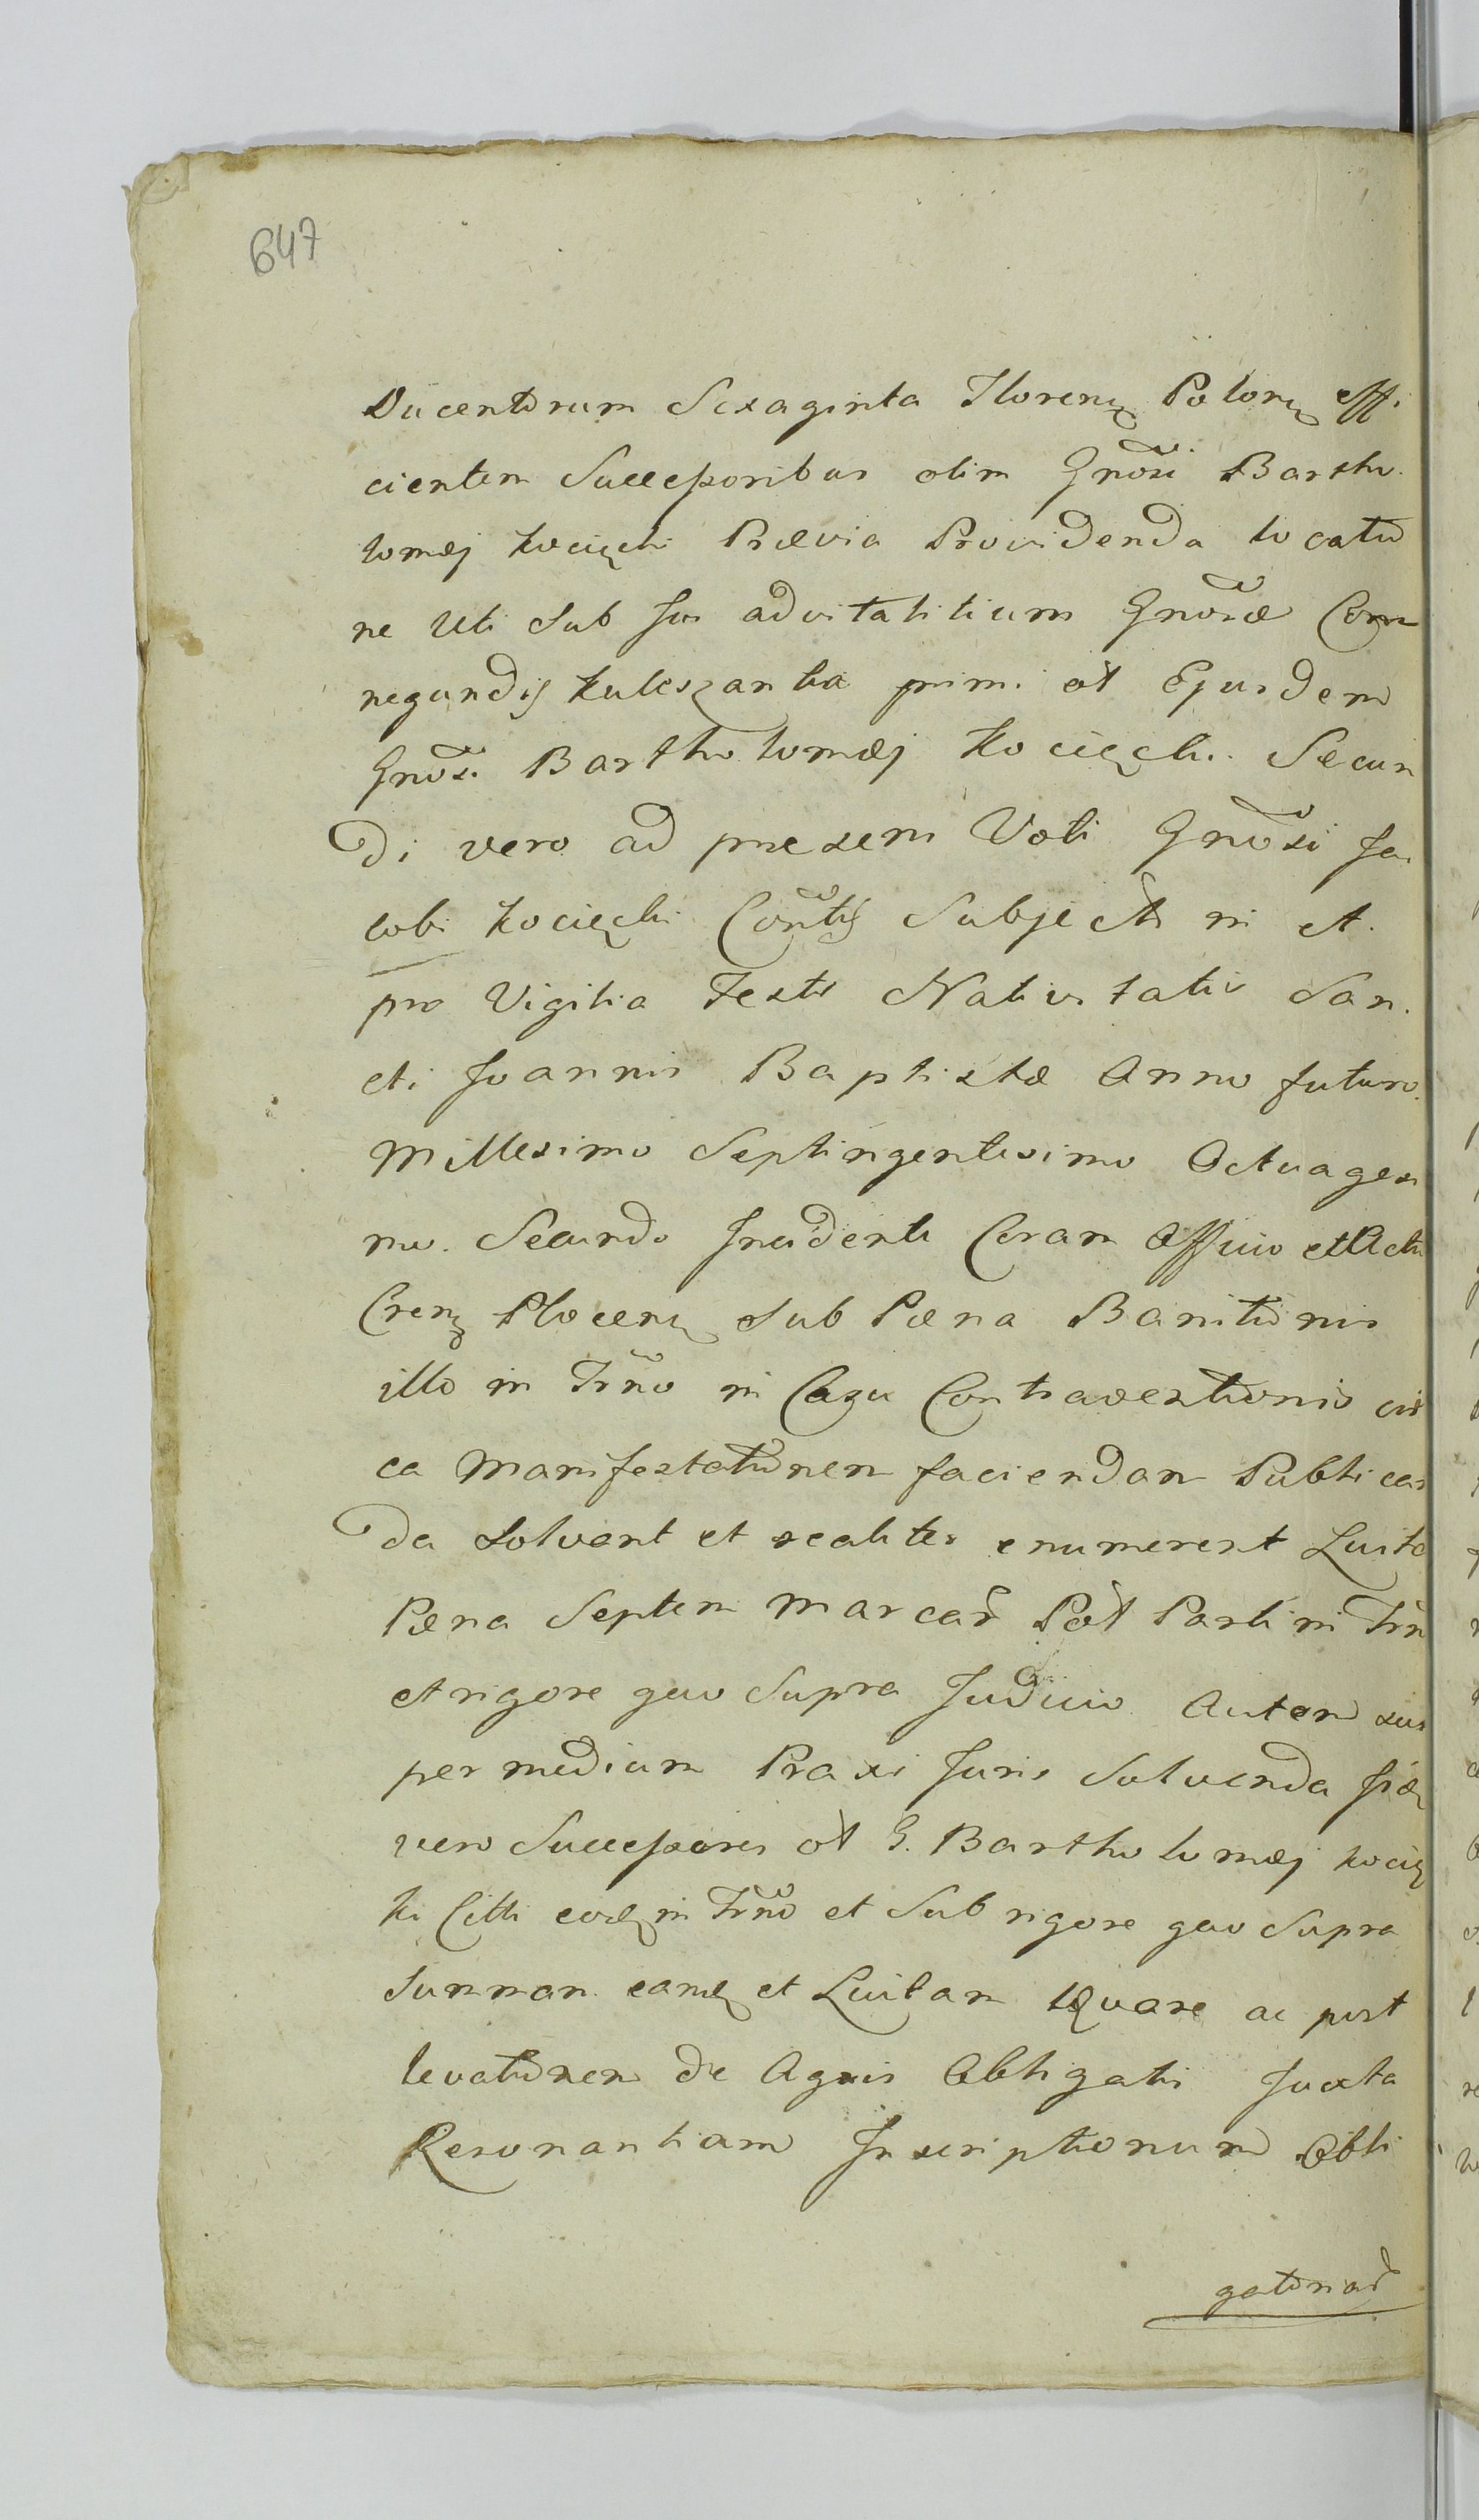 647
Ducentorum Sexaginta Florenz Polonz effi
cientem Successoribus olim Gnosi Bartho
lomæj Kocięcki Prævia Providenda locatio
ne Uti Sub Jus advitalitium Gnosæ Conu
negundis Kuleszanka primi ot Ejusdem
Gnosi Bartholomæj Kocięcki Secun
di vero ad præsens Voti Gnosi Ja
cobi Kocięcki Contis Subjecta in et
pro Vigilia Festi Nativitatis San
cti Joannis Baptistæ Anno futuro
Millesimo Septingentesimo Octuagesi
mo Secundo Incidenti Coram Officio et Actis
Crenz Plocenz Sub Pæna Banitionis
illo in Trno in Casu Contraventionis cir
ca Manifestationem faciendam Publican
da Solvant et realiter enumerent Luito
Pæna Septem Marcar Pol Parti in Trn
et rigore quo Supra Judicio Autem sus
per medium Praxi Juris Solvenda
vero Successores ot G. Bartholomæj Kocię
ki Citti eodz in Trno et Sub rigore quo Supra
Summam eamdz et Luitam levare ac post
levationem de Agris Obligatis Juxta
Resonantiam Inscriptionum Obli
gatoriar